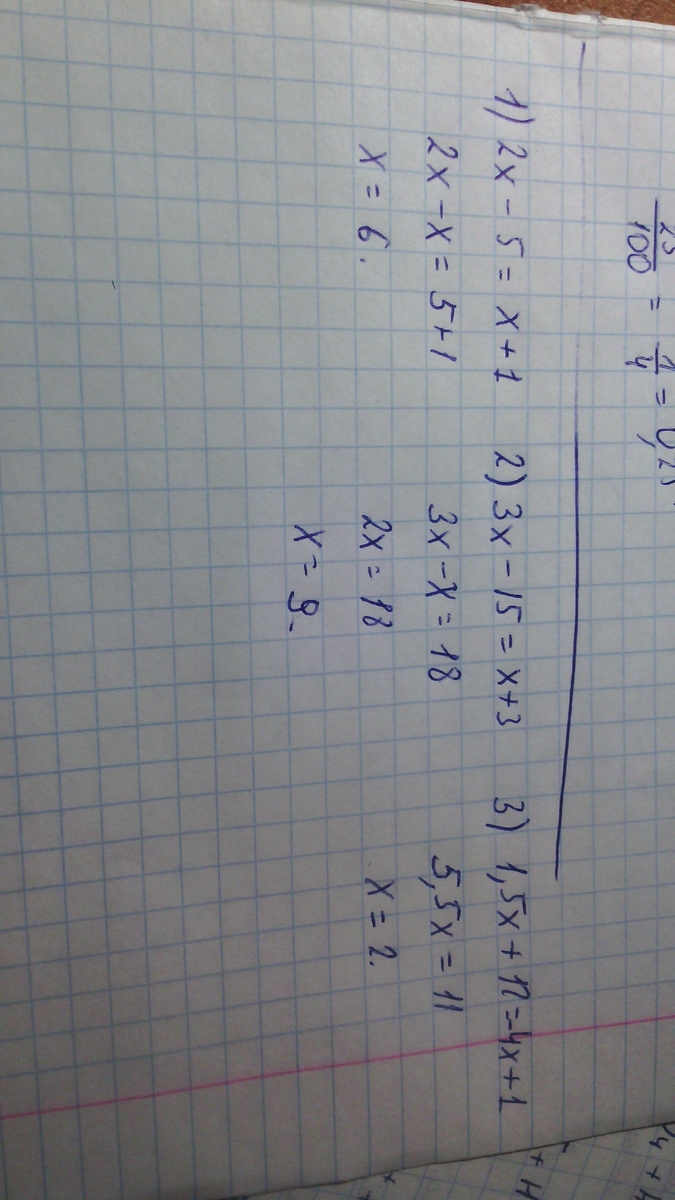 25/100 = 1/4 = 0,25
1) 2x - 5 = x + 1
2x - x = 5 + 1
x = 6.
2) 3x - 15 = x + 3
3x - x = 18
2x = 18
x = 9.
3) 1,5x + 12 = -4x + 1
5,5x = 11
x = 2.